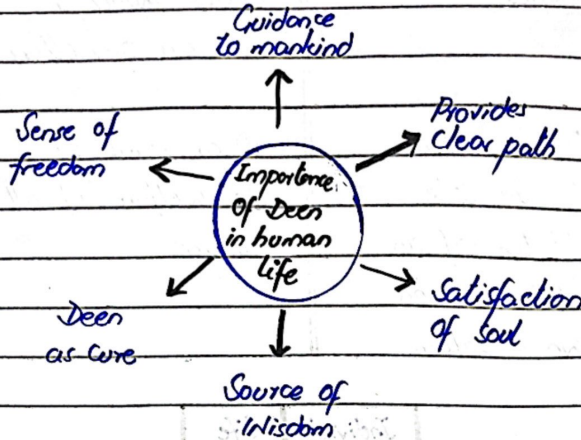 Guidance
to mankind
Provides
clear path
Sense of
freedom
Importence
Of Deen
in human
life
Satisfaction
of soul
Deen
as cure
Source of
Wisdom